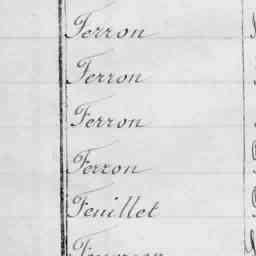 Ferron
Ferron
Ferron
Ferron
Feuillet